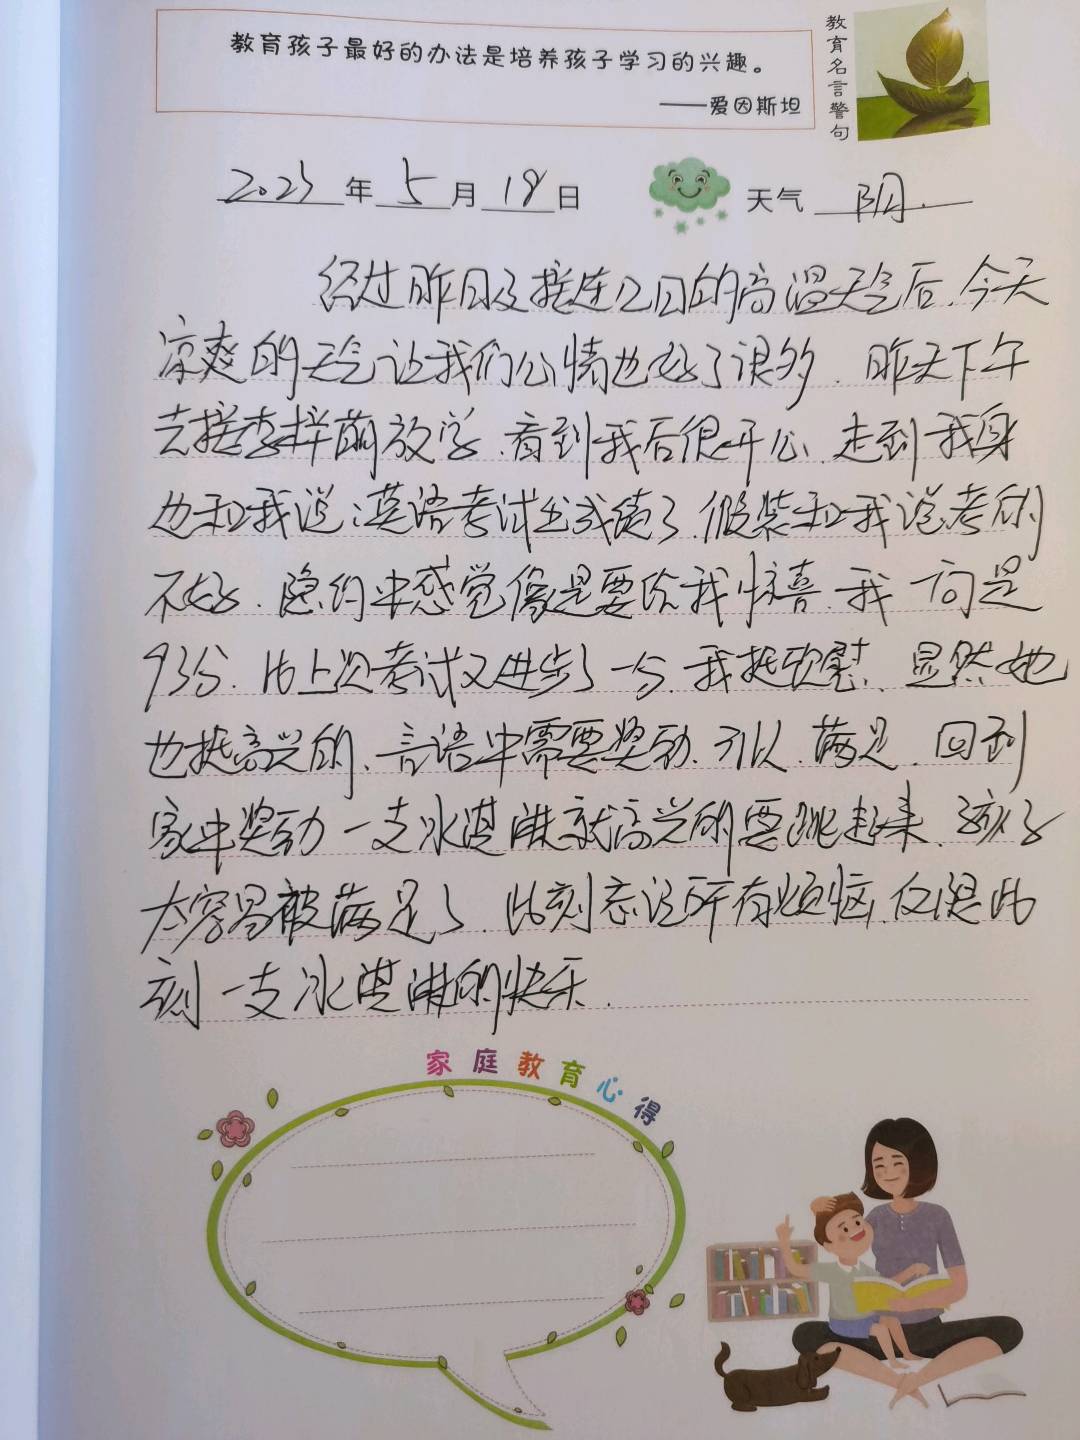 教育孩子最好的办法是培养孩子学习的兴趣。
——爱因斯坦
教育名言警句
2023年5月18日 天气 阴.
经过昨日及接连几日的高温天气后,今天
凉爽的天气让我们心情也好了很多. 昨天下午
去接李样萌放学,看到我后很开心,走到我身
边和我说:英语考试出成绩了,假装和我说考的
不好,隐约中感觉像是要给我惊喜,我一问是
93分,比上次考试又进步了一分,我挺欣慰,显然她
也挺高兴的,言语中需要奖励,可以,满足,回到
家中奖励一支冰淇淋就高兴的要跳起来,孩子
太容易被满足了,此刻忘记所有烦恼,仅限此
刻一支冰淇淋的快乐.
家庭教育心得